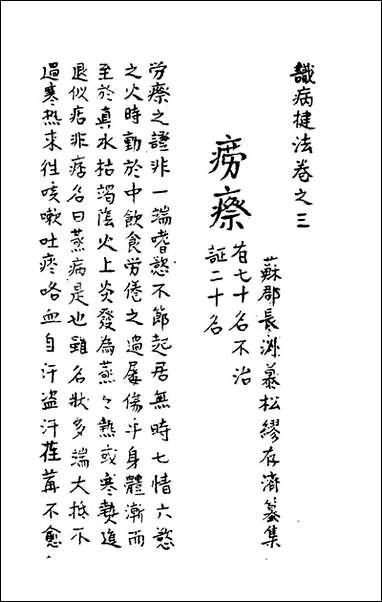 識病㨗法卷之三
蘇郡長洲慕松繆存濟纂集
癆瘵
有七十名不治
証二十名
労瘵之證非一端嗜慾不節起居無時七情六慾
之火時動於中飲食労倦之過屢傷乎身體漸而
至於真水枯竭陰火上炎發為蒸々熱或寒熱進
退似瘧非瘧名曰蒸病是也雖名狀多端大抵不
過寒熱來徃咳嗽吐痰咯血自汗盗汗荏苒不愈